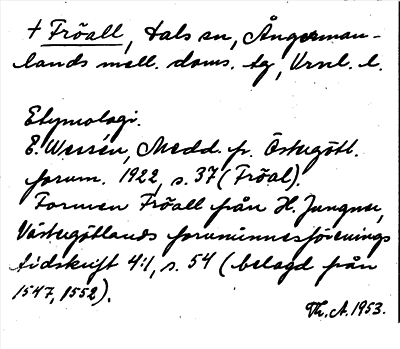 † Fröall, Hals sn, Ångerman-
lands mell. doms. tg, Vrnl. l.
Etymologi.
E. Wessén, Medd. fr. Östergötl.
fornm. 1922, s. 37 (Fröal).
Formen Fröall från H. Jungner,
Västergötlands fornminnesförenings
tidskrift 4:1, s. 54 (belagd från
1547, 1552).
Th. A. 1953.